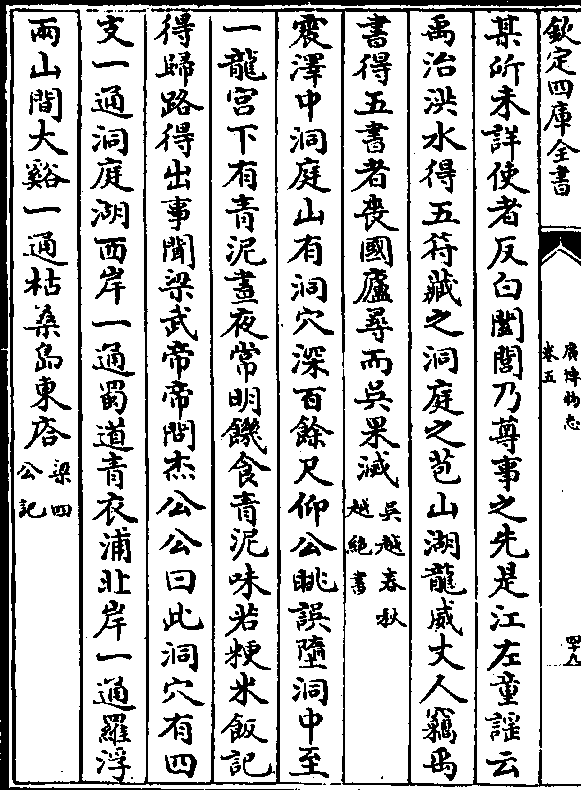 欽定四庫全書
廣博物志
卷五
四十八
某所未詳使者反白闔閭乃尊事之先是江左童謡云
禹治洪水得五符藏之洞庭之苞山湖龍威丈人竊禹
書得五書者喪國廬尋而吳果滅吳越春秋
越絶書
震澤中洞庭山有洞穴深百餘尺仰公眺誤墮洞中至
一龍宫下有青泥晝夜常明饑食青泥味若粳米飯記
得歸路得出事聞梁武帝帝問杰公公曰此洞穴有四
支一通洞庭湖西岸一通蜀道青衣浦北岸一通羅浮
兩山間大谿一通枯桑島東𡶶梁四
公記